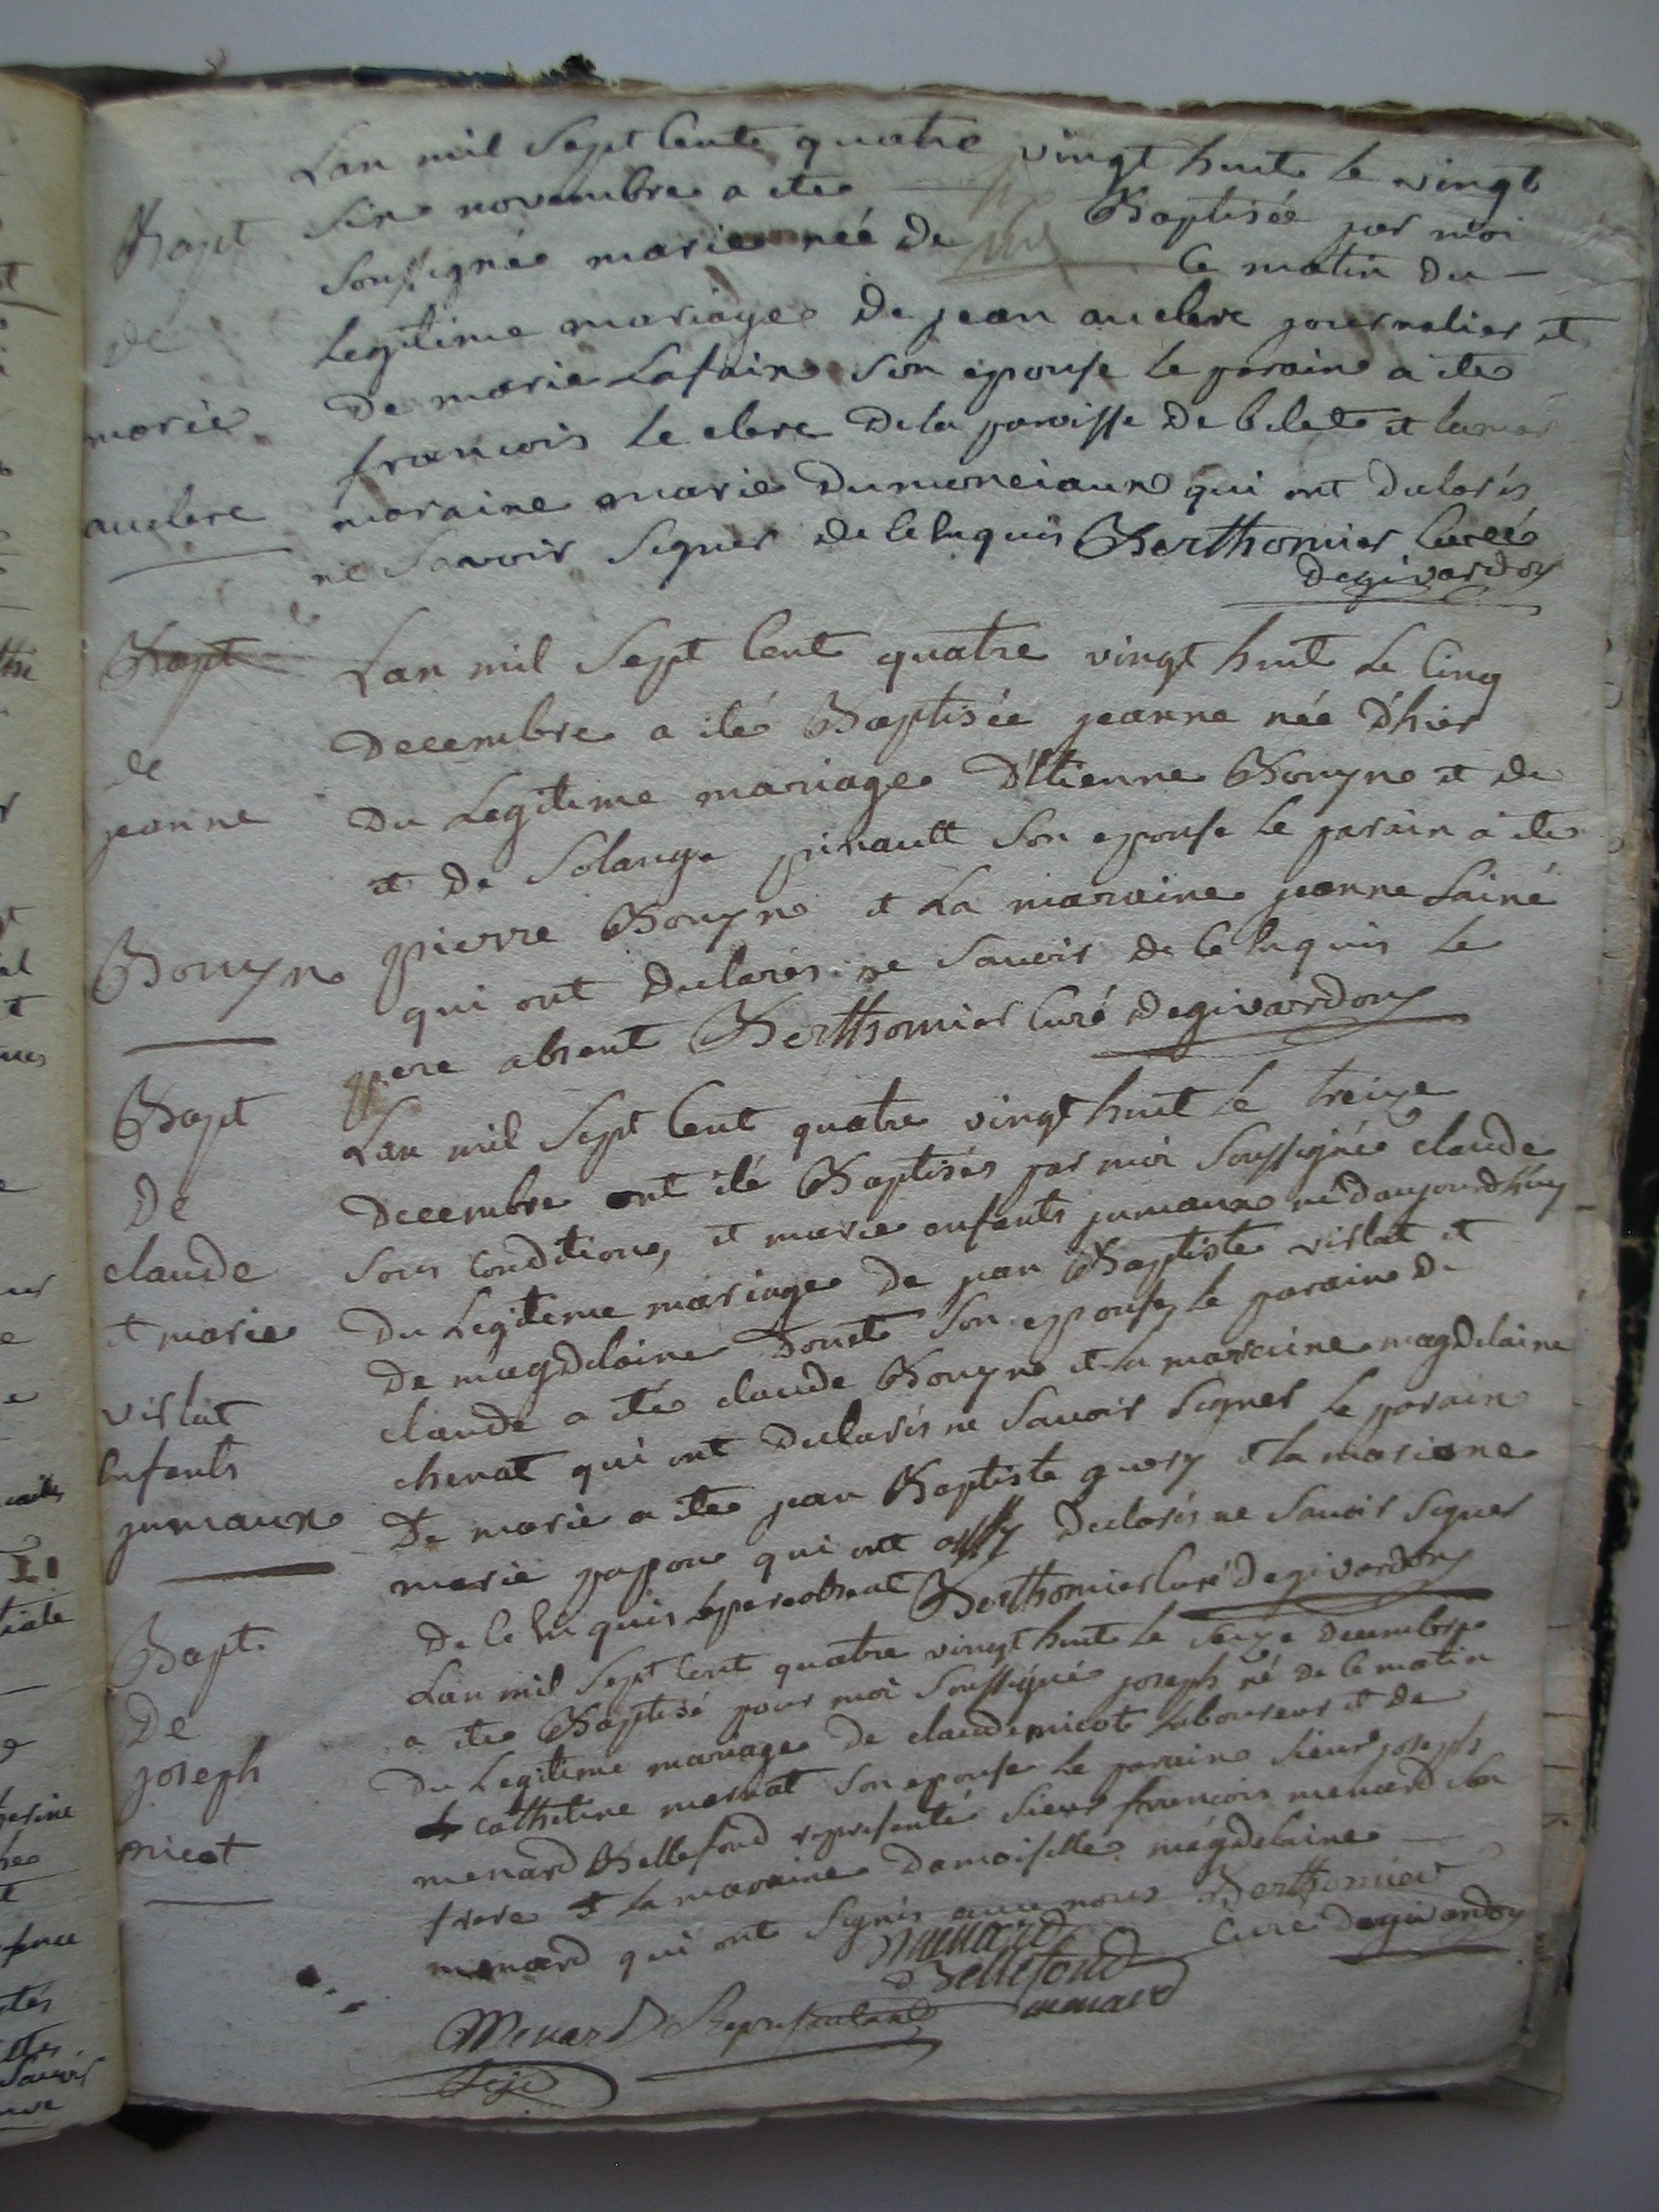 Lan mil Sept Cents quatre vingt huit le vingt
Bapt Six novembre a ete Baptisée par moi
Soussigné marie née de Ce matin du
de Legitime mariage de jean auclerc journalier et
marie De marie Lafaix Son epouse le parain a ete
francois le clerc De la paroisse De et la mar
auclerc maraine marie Dumonciaux qui ont Declarés
ne Savoir Signer de Ce Enquis Berthomier Curé
Degivardon
Bapt Lan mil Sept Cent quatre vingt huit Le Cinq
Decembre a eté Baptisée jeanne née D'hier
de
jeanne Du Legitime mariage D'Etienne Bouyn et de
et De Solange pinault Son epouse Le parain a ete
Bouyn pierre Bouyn et La maraine jeanne Lainé
qui ont Declarés ne Savoir de Ce Enquis Le
pere absent Berthomier Curé Degivardon
Bapt Lan mil Sept Cent quatre vingt huit le treize
De Decembre ont eté Baptisés par moi Soussigné claude
claude Sous Condition, et marie enfants jumeaux né daujourd'huy
et marie Du Legitime mariage De jean Baptiste virlat et
De magdelaine Douet Son epouse, le parain De
virlat claude a eté claude Bouyn et la maraine magdelaine
Enfants chenat qui ont Declarés ne Savoir Signer le parain
jumaux De marie a ete jean Baptiste guery et la maraine
marie papon qui ont aussy Declarés ne Savoir Signer
De Ce Enquis le pere absent Berthomier Curé Degivardon
Bapt. Lan mil Sept Cent quatre vingt huit le Seize Decembre
De a ete Baptisé pour moi Soussigné joseph né de Ce matin
joseph Du Legitime mariage De claude micat Laboureur et de
cathetine mernat Son epouse Le parain Sieur joseph
micat menard Bellefond representé Sieur francois menard Son
frere et La maraine Damoiselle magdelaine
menard qui ont Signés avec nous Berthomier
menard Curé Degivardon
Bellefond
Menard Representant menard